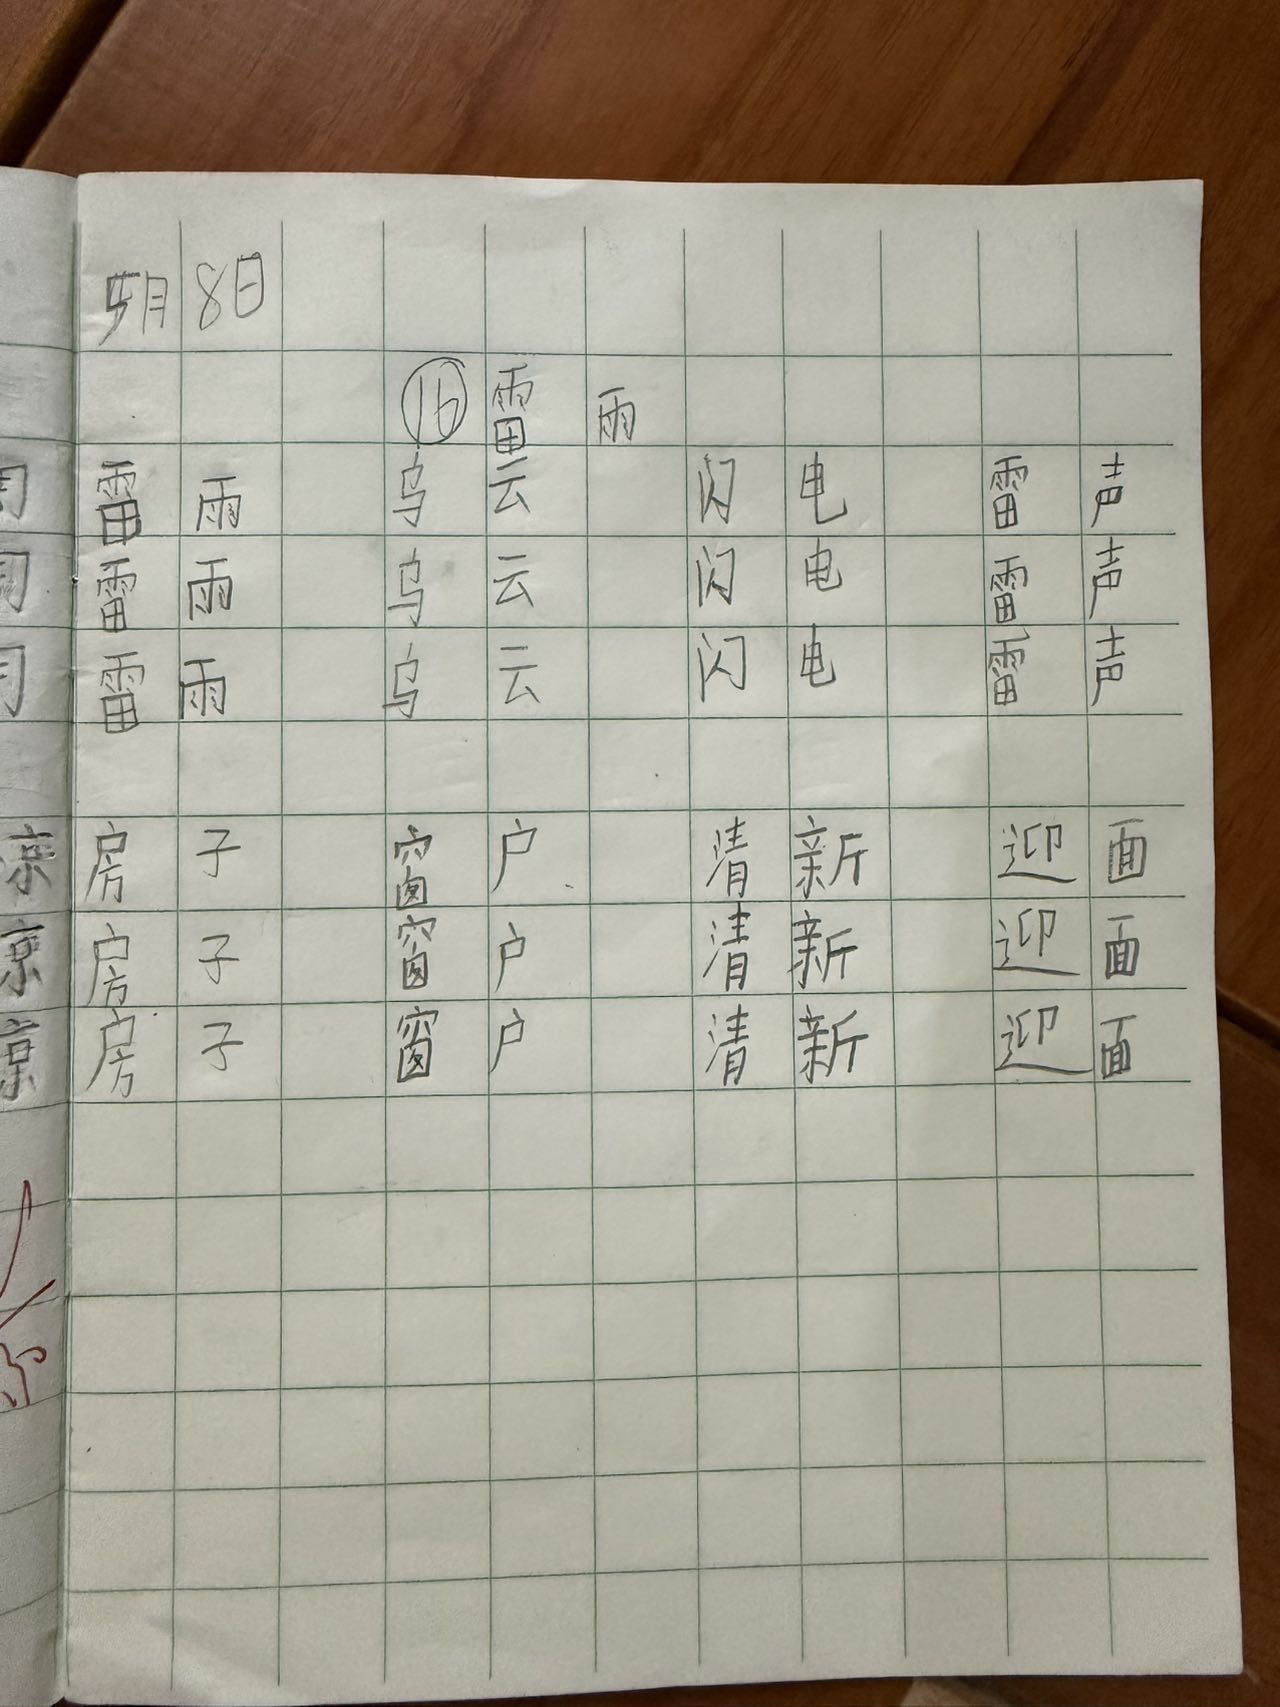 5月8日
⑯雷雨
雷雨 乌云 闪电 雷声
雷雨 乌云 闪电 雷声
雷雨 乌云 闪电 雷声
房子 窗户 清新 迎面
房子 窗户 清新 迎面
房子 窗户 清新 迎面